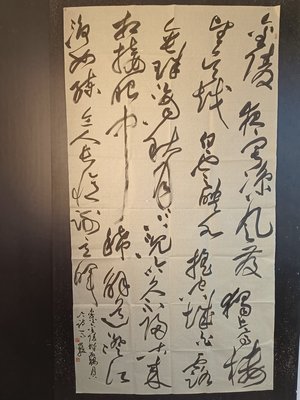 金陵夜寂凉风发独上高楼
望吴越白云映水摇空城白露
垂珠滴秋月月下沉吟久不归古来
相接眼中稀解道澄江
净如练令人长忆谢玄晖